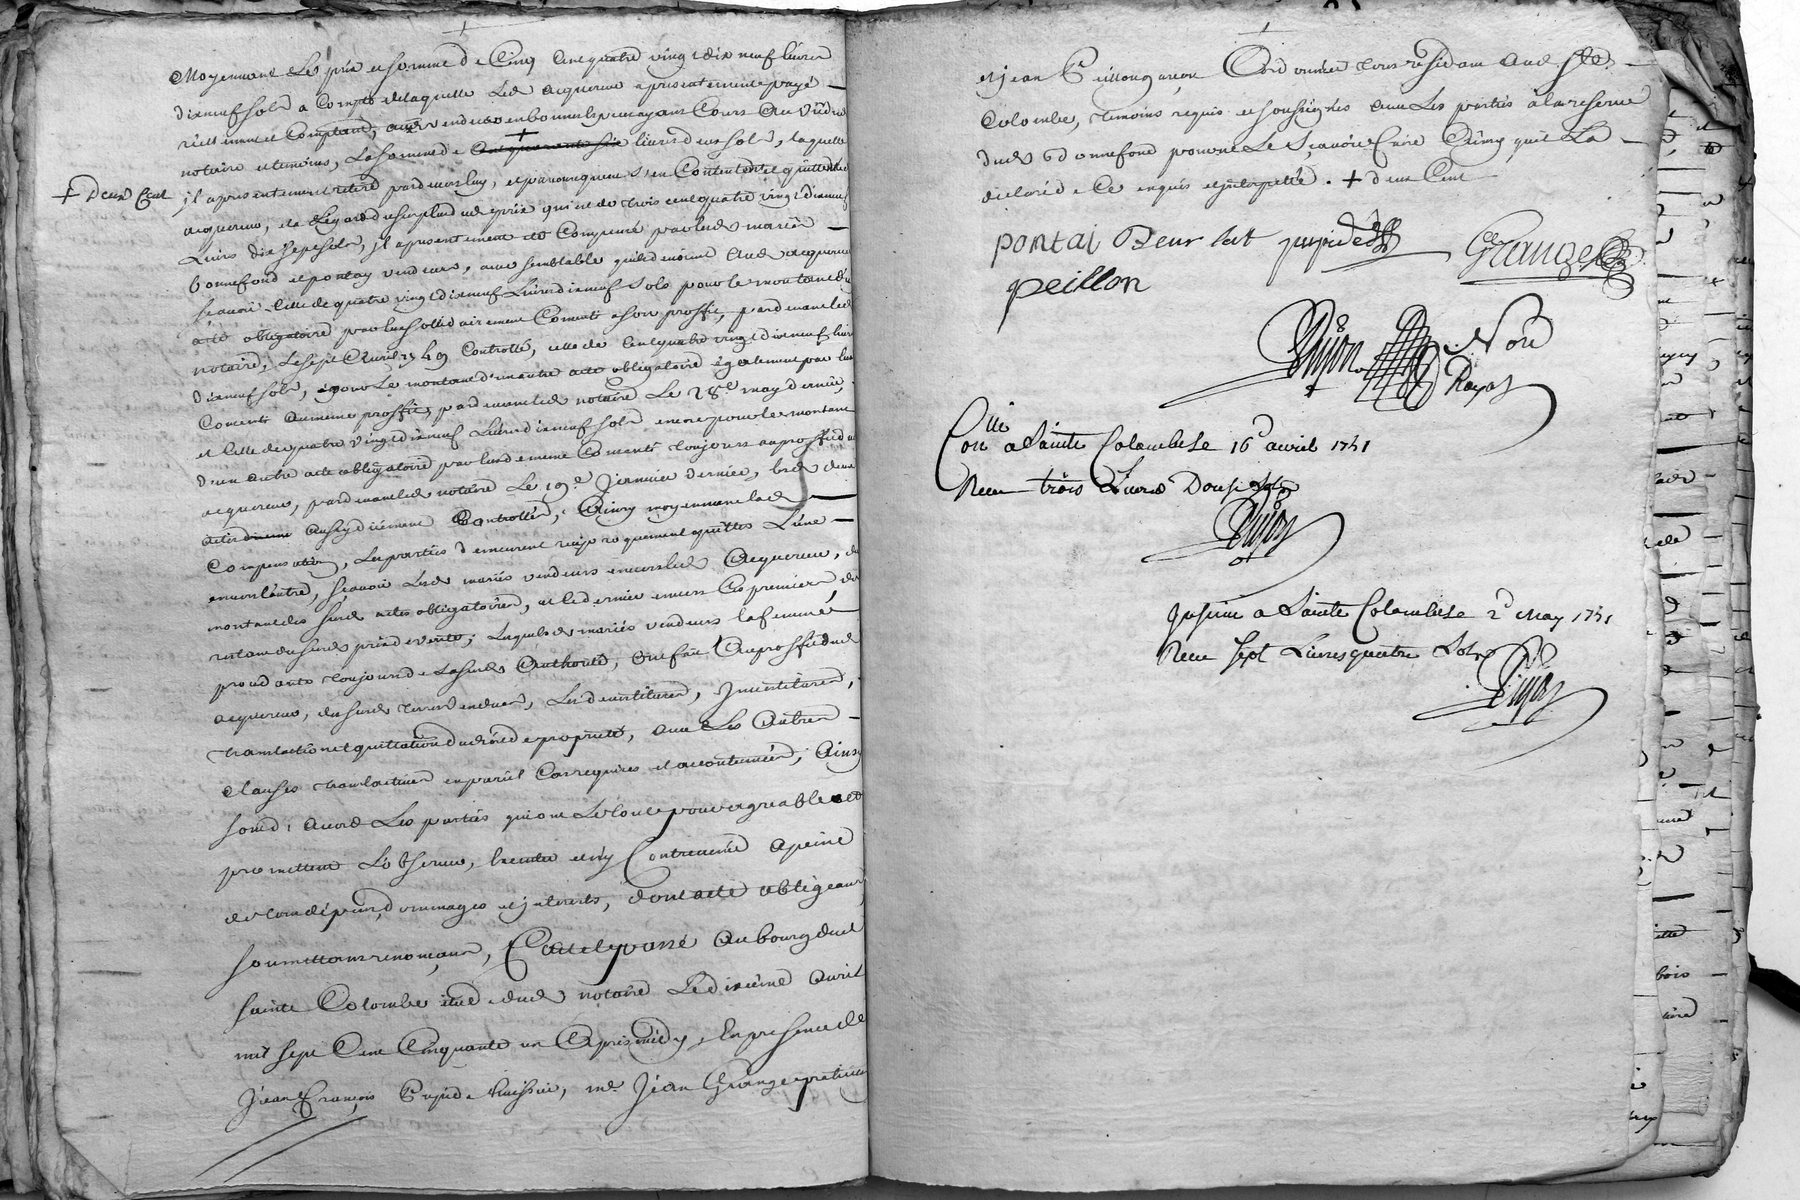 Moyennant le prix et somme de Cinq Cent quatre vingt dix neuf livres
dix neuf sols a Compte de laquelle led acquereur a presentement payé
réellement et Comptant, vendeurs en bonnes especes ayant Cours Au vû dud
notaire et temoins, La somme de livres dix sols, laquelle
+ Deux Cent
il a presentement retiré pardevers luy, et par ce moyen s'en Contentent et quittent led
acquereur, et a L'égard du surplus dud prix qui est de trois cent quatre vingt dix neuf
Livres dix sept sols, il a presentement été Compensé par lesd mariés
bonnefond et pontay vendeurs, avec semblable qu'ils doivent Aud acquereur
sçavoir Celle de quatre vingt dix neuf Livres dix neuf sols pour le montant d'un
acte obligatoire par lesd solidairement Consenti a son proffit, pardevant led
notaire, Le sept Avril 1749 Controllé, celle de Cent quatre vingt dix neuf livres
dix neuf sols, pour Le montant d'un autre acte obligatoire également par eux
Consenti Au meme proffit, pardevant led notaire Le 28e may dernier,
et Celle de quatre vingt dix neuf Livres dix neuf sols encore pour le montant
d'un autre acte obligatoire par lesd de meme Consenti toujours au proffit dud
acquereur, pardevant led notaire Le 19e Janvier dernier, lesd deux
actes Aussy düement Controllés, Ainsy moyennant lad
Compensation, Les parties demeurent reciproquement quittes L'une
envers l'autre, sçavoir lesd mariés vendeurs envers led Acquereur, du
montant des susd actes obligatoires, et led dernier envers les premiers du
restant du susd prix de vente; lesquels mariés vendeurs la femme
procedante toujours de la susd Authorité, ont fait Au proffit dud
acquereur, des susd terres vendues, Les devestitures, Investitures,
translation et quittation du droit de proprieté, avec Les Autres
clauses translatives en pareil Cas requises et accoutumées, Ainsy
sont d'accord Les parties qui ont Le tout pour agreable et
promettent L'observer, et n'y Contrevenir a peine
de tous dépens, dommages et interets, dont acte obligeant
soumettant renonçant, fait et passé Au bourg dud
sainte Colombe étude dud notaire Le dixième avril
mil sept Cent Cinquante un Après midy, En presence de
Jean François Pupid huissier, me. Jean Grange praticien
et Jean Peillon garçon Cordonnier tous residant Aud Ste.
Colombe, temoins requis et soussignés avec Les parties a la reserve
dud bonnefond pour ne Le Sçavoir faire Ainsy qu'il L'a
declaré de Ce enquis et interpellé. + deux Cent
pontai Deurlat pupid Grange
peillon
Dujon Nore
Royal
Collé
a Sainte Colombe Le 16e avril 1751
Receu trois Livres Douze sols
Dujon
Insinué a Sainte Colombe Le 2d May 1751
Receu sept Livres quatre sols
Dujon